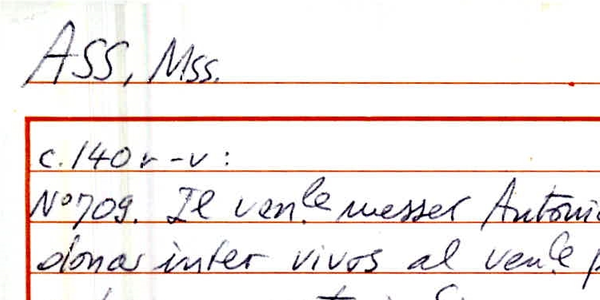 ASS, Mss.
c. 140 r - v :
N° 709. Il ven.le messer Antoni
donas inter vivos al ven.le p